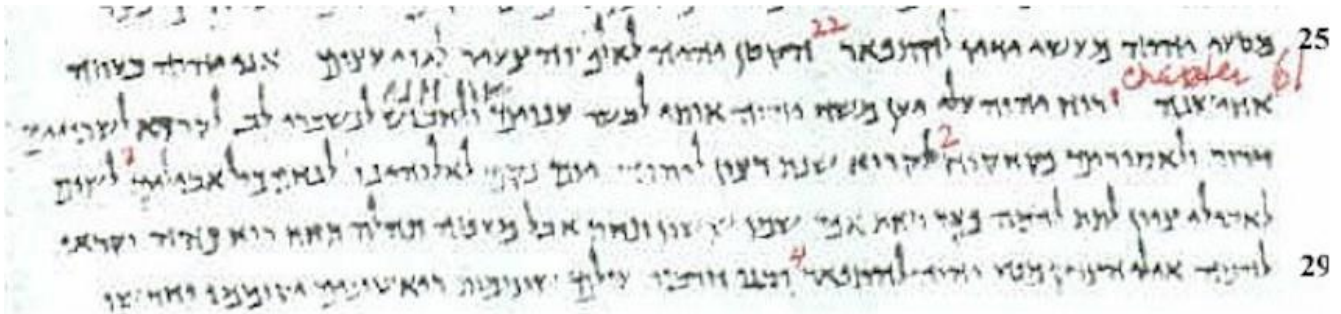 25 מטעי יהוה מעשי ידיו להתפאר 22 הקטן יהיה לאלף והצעיר לגוי עצום אני יהוה בעתה
chapter 61
אחישנה רוח יהוה עלי יען משח יהוה אותי לבשר ענוים ולחבוש לנשברי לב לקרוא לשבויים
דרור ולאסורים פקחקוח 2 לקרוא שנת רצון ליהוה יום נקם לאלוהינו לנחם כול אבלים 3 לשום
לאבילי ציון לתת להמה פאר תחת אפר שמן ששון תחת אבל מעטה תהלה תחת רוח כהה וקראו
29 להמה אילי הצדק מטע יהוה להתפאר 4 ובנו חרבות עולם שוממות ראשונים יקוממו וחדשו